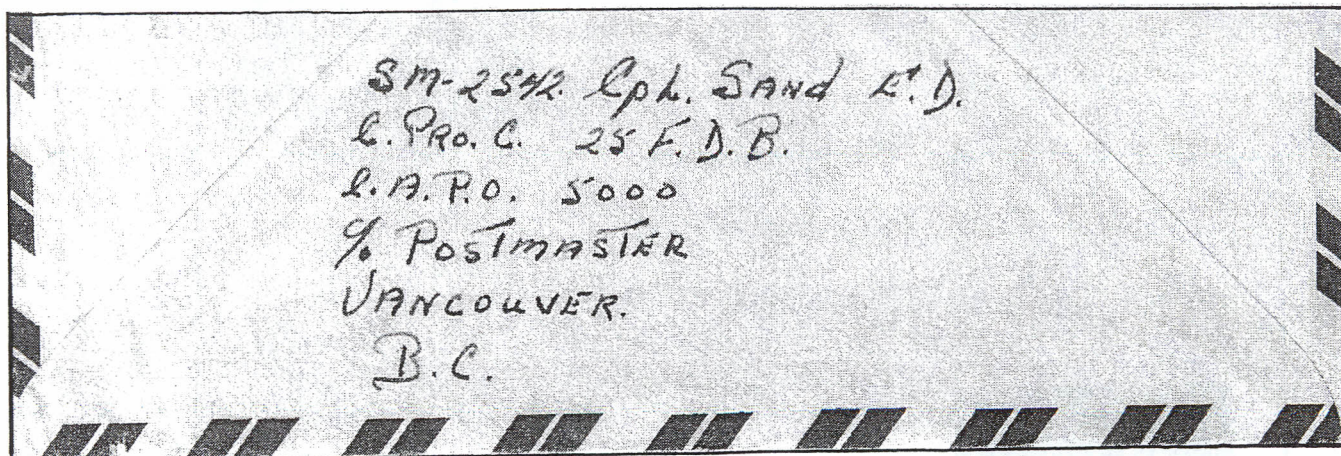 SM-2542 Cpl. SANd E.D.
C. PRO. C. 25 F. D. B.
C. A. P. O. 5000
c/o POSTMASTER
VANCOUVER.
B.C.